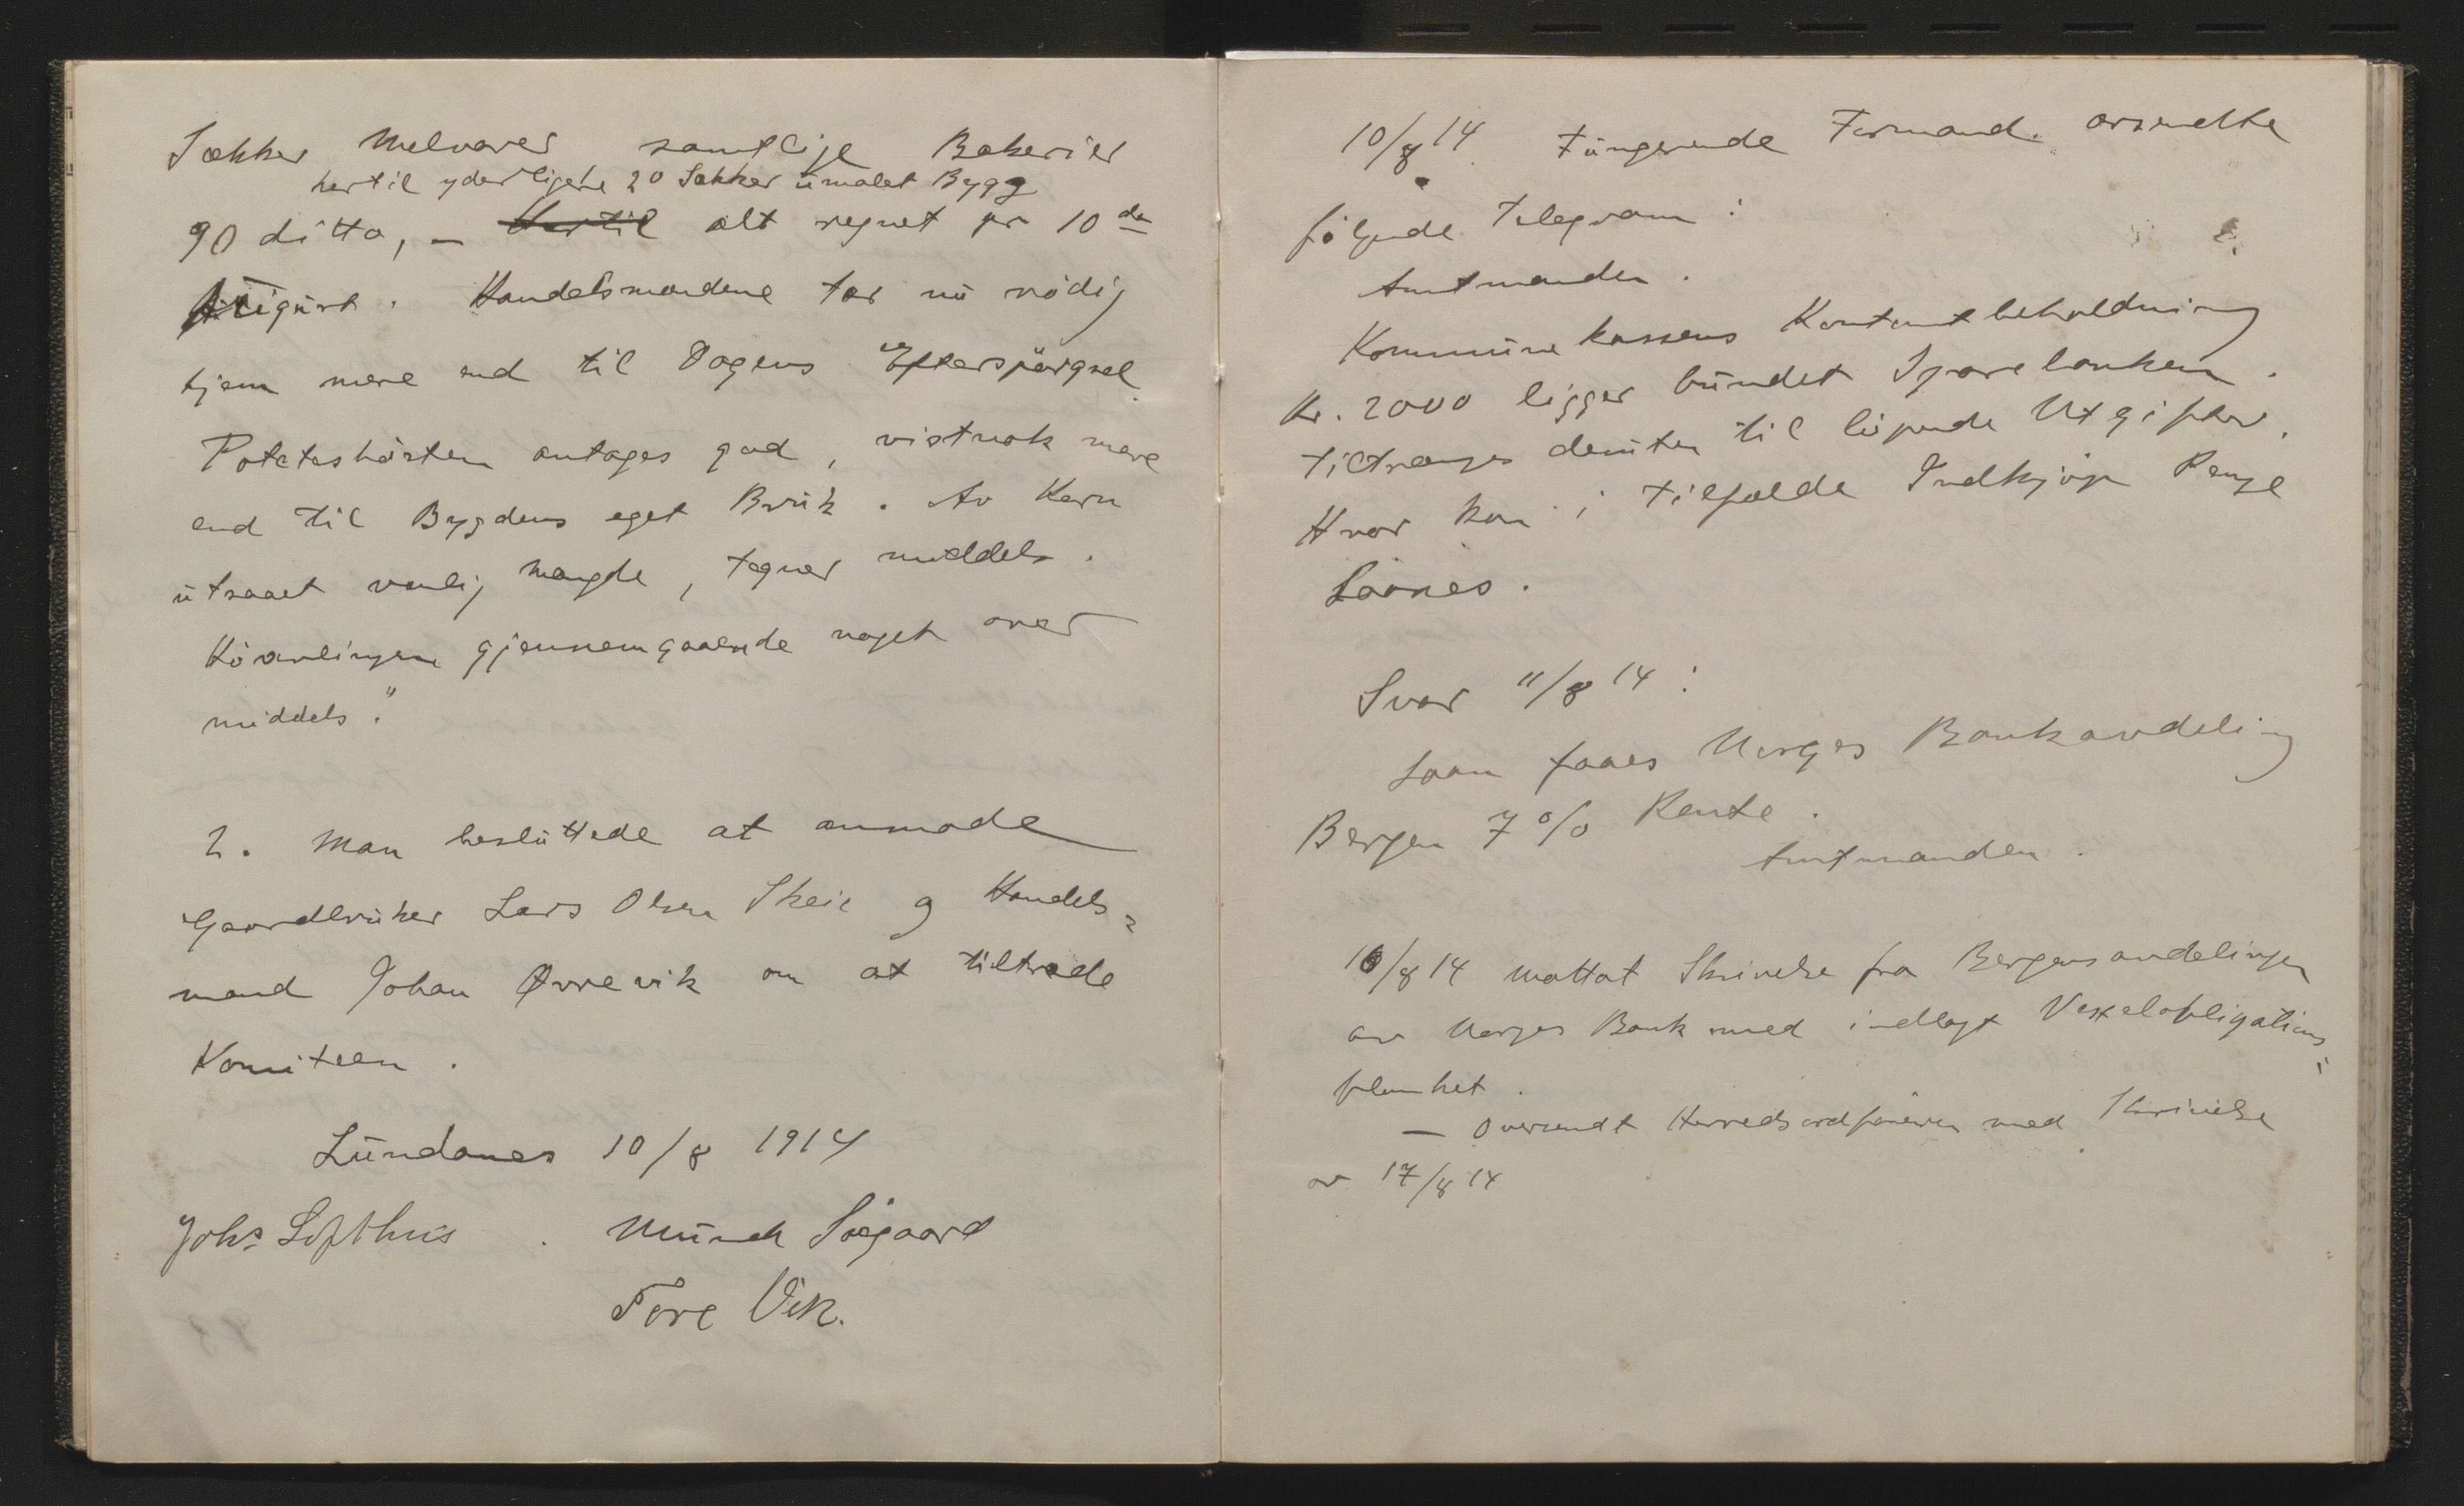 Sækker Melvarer samtlige Bakerier
hertil yderligere 20 Sækker umalet Bygg
90 ditto, – Hertil alt regnet pr 10de
August. Handelsmændene tar nu nödig
hjem mere end til Dagens Efterspörgsel.
Potetshösten antages god, vistnok mere
end til Bygdens eget Bruk. Av Korn
utsaaet vanlig Mængde, tegner middels.
Höavlingen gjennemgaaende noget over
middels."
2. Man besluttede at anmode
Gaardbruker Lars Olsen Skeie og Handels=
mand Johan Øvrevik om at tiltræde
Komiteen.
Lundanes 10/8 1914
Johs Lofthus. Munch Søegaard
Tore Vik.
10/8 14 Fungerende Formand avsendte
fölgende Telegram:
Amtmanden.
Kommunekassens Kontantbeholdning
Kr. 2000 ligger bundet Sparebanken.
Tiltrænges desuten til löpende Utgifter.
Hvor kan i Tilfælde Indkjöp Penge
Laanes.
Svar 11/8 14:
Laan faaes Norges Bankavdeling
Bergen 7 % Rente.
Amtmanden.
16/8 14 mottat Skrivelse fra Bergensavdelingen
av Norges Bank med indlagt Vexelobligations=
blanket.
– Oversendt Herredsordföreren med Skrivelse
av 17/8 14